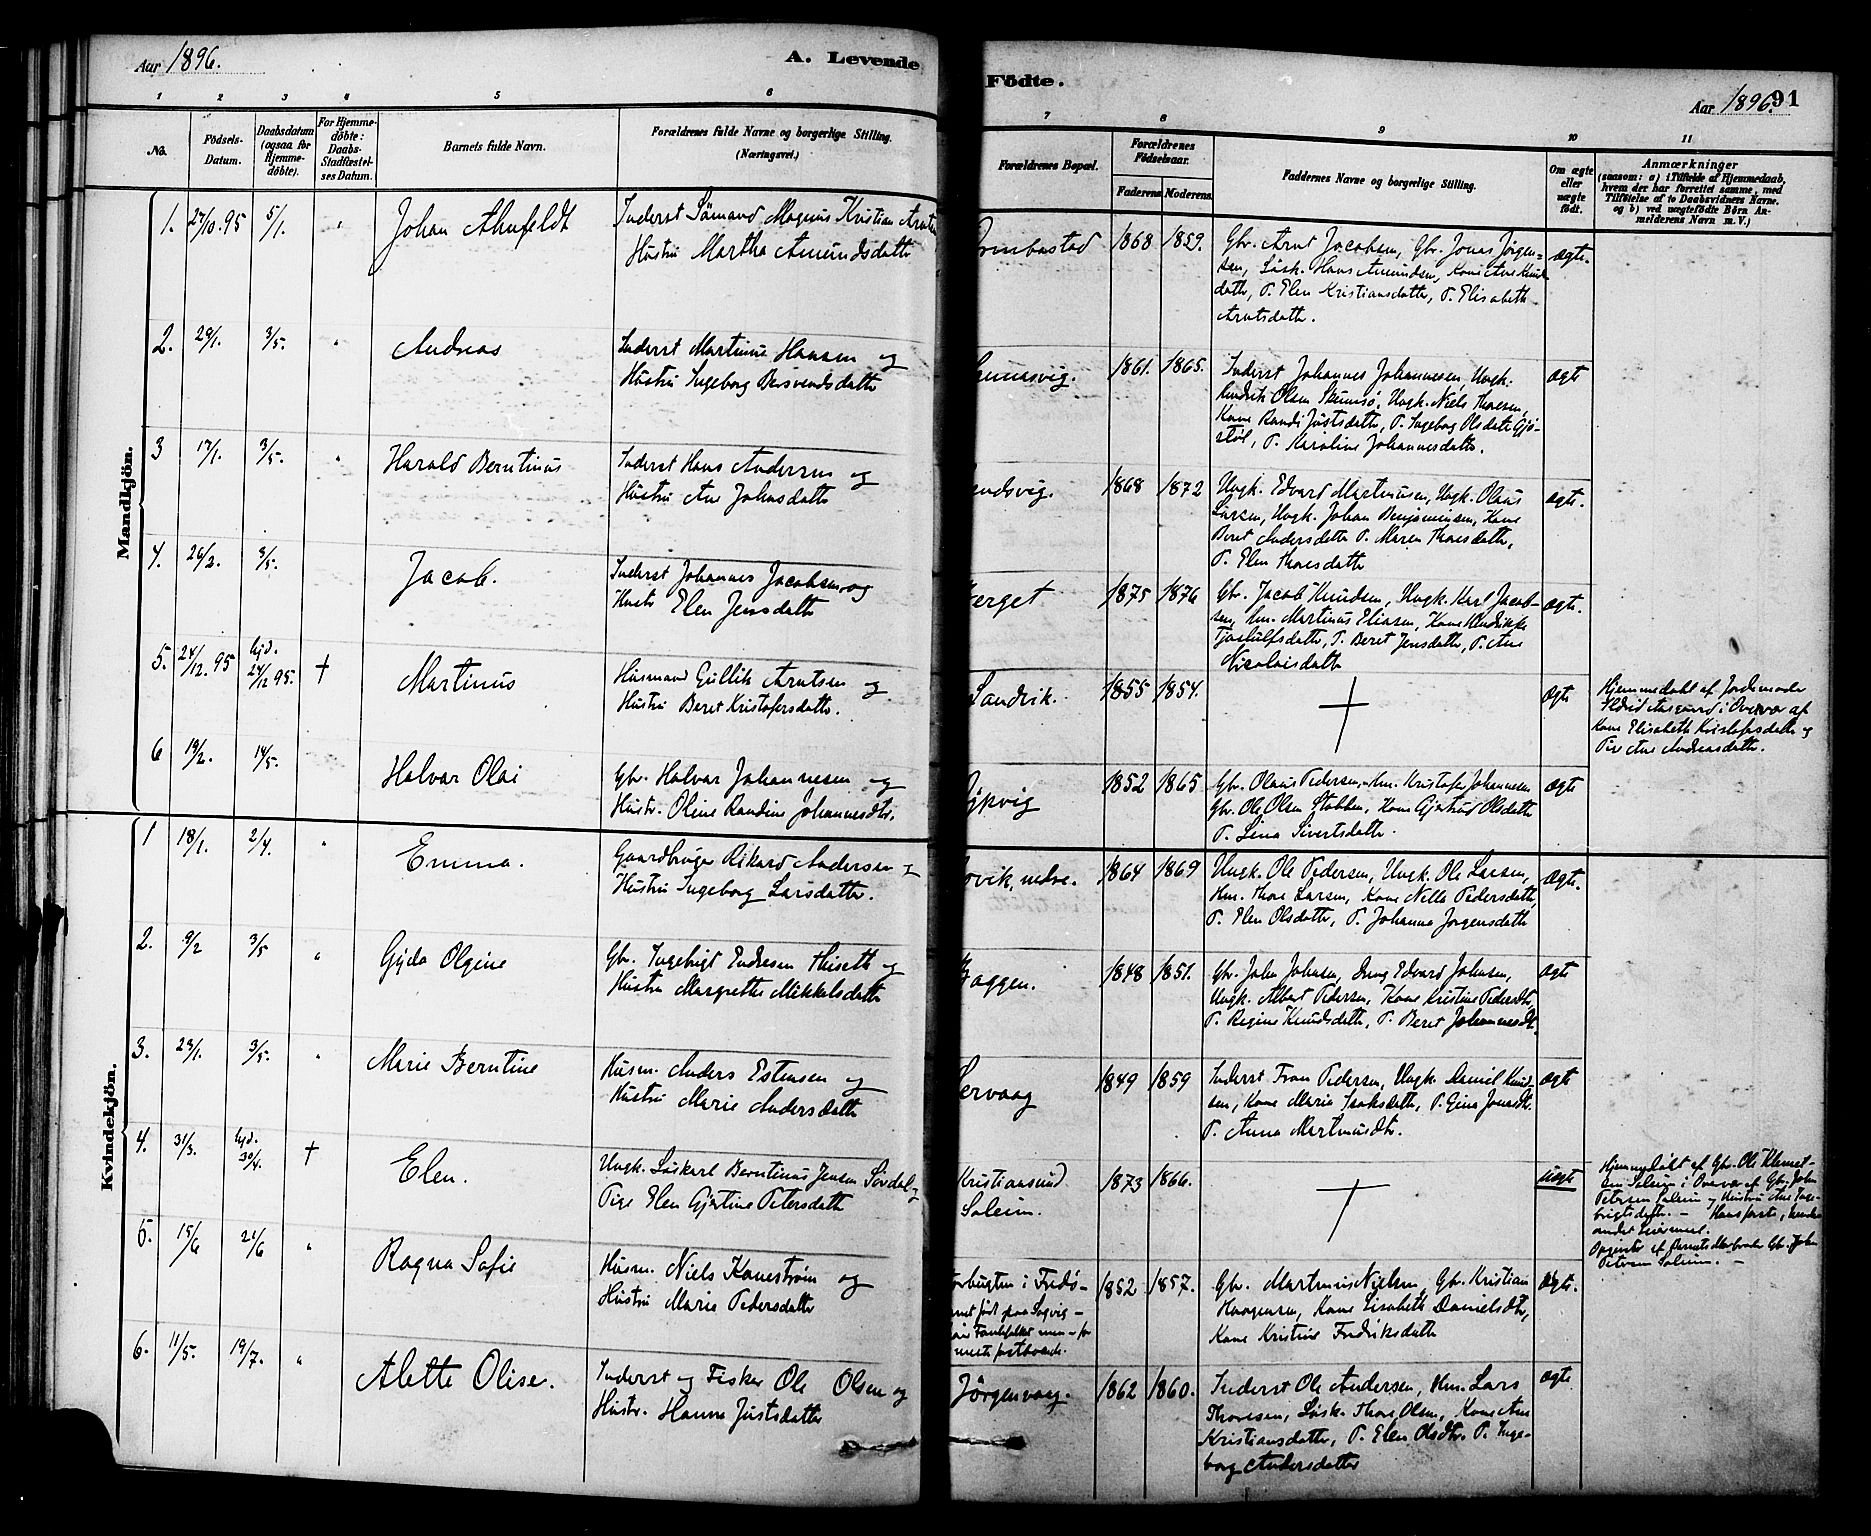 Aar 1896.
A. Levende
Födte.
Aar 1896.
91
1 2 3 4 5 6
7 8 9 10 11
No.
Födsels-
Datum.
Daabsdatum
(ogsaa for
Hjemme-
döbte).
For Hjemme-
döbte:
Daabs-
Stadfæstel-
ses Datum.
Barnets fulde Navn.
Forældrenes fulde Navne og borgerlige Stilling.
(Næringsvei.)
Forældrenes Bopæl.
Forældrenes
Födselsaar.
Faderens. Moderens.
Faddernes Navne og borgerlige Stilling.
Om ægte
eller
uægte
födt.
Anmærkninger
(saasom: a) i Tilfælde af Hjemmedaab,
hvem der har forrettet samme, med
Tilföielse af to Daabsvidners Navne.
og b) ved uægtefödte Börn An-
melderens Navn m. V.)
Mandkjön.
1. 27/10.95 5/1. " Johan Ahnfeldt
Inderst Sömand Magnus Kristian
Hustru Martha Amundsdatter
1868 1859.
Gbr. Arnt Jacobsen, Gbr. Jonas Jörgen-
sen, Hans Amundsen, Kone Ane Knuds-
datter, P. Elen Kristiansdatter, P. Elisabeth
Arntsdatter.
ægte.
2. 29/1. 3/5. " Andreas
Inderst Martinus Hansen og
Hustru Ingeborg Bersvendsdatter
1861. 1865.
Inderst Johannes Johannessen, Ungk.
Olsen Ungk. Niels Thoresen,
Kone Randi Justsdatter, P. Ingeborg Olsdatter
P. Karoline Johannesdatter.
ægte
3 17/1. 3/5. " Harald Berntinus
Inderst Hans Andersen og
Hustru Ane Johnsdatter
1868 1872
Ungk. Edvard Martinusen, Ungk. Olaus
Larsen, Ungk. Johan Benjaminsen, Kone
Beret Andersdatter P. Maren Thoresdatter,
P. Elen Thoresdatter
ægte.
4. 26/2. 3/5. Jacob.
Inderst Johannes Jacobsen og
Hustr Elen Jensdatter
1875 1876
Gbr. Jacob Knudsen, Ungk. Karl Jacob-
sen, Hm. Martinus Eliasen, Kone
P. Beret Jensdatter, P. Ane
Nicolaisdatter
ægte.
5. 24/12.95 hjd. 24/12 95. † Martinus
Husmand Gullik Arntsen og
Hustru Beret Kristofersdatter.
Sandvik. 1855 1854.
†
ægte
Hjemmedöbt af Jordemoder
i Overvær af
Kone Elisabeth Kristofersdatter og
Pige Ane Andreasdatter.
6 19/2. 14/5. Halvar Olai
Gbr. Halvar Johannesen og
Hustr. Oline Randine Johannesdtr.
1852 1865
Gbr. Olaus Pedersen, Hm. Kristofer Johannesen
Gbr. Ole Olsen Stabben, Kone Gjertrud Olsdatter
P. Lina Sivertsdatter.
ægte
Kvindekjön.
1 18/1. 2/4. " Emma.
Gaardbruger Rikard Andersen og
Hustru Ingeborg Larsdatter.
nedre. 1864 1869
Ungk. Ole Pedersen, Ungk. Ole Larsen,
Hm. Thore Larsen, Kone Nella Pedersdatter,
P. Elen Olsdatter, P. Johanna Jörgensdatter
ægte.
2. 9/2 3/5 " Gyda Olgine
Gbr. Ingebrigt Endresen Huseth og
Hustru Margrethe Mikkelsdatter
1848 1851.
Gbr. John Johnsen, Edvard Johnsen,
Ungk. Albert Pedersen, Kone Kristine Pedersdtr,
P. Regine Knudsdatter, P. Beret Johannesdt.
ægte
3. 23/1. 3/5. " Marie Berntine
Husm. Anders Estensen og
Hustru Marie Andersdatter
1849 1859
Inderst Frans Pedersen, Ungk. Daniel Knud-
sen, Kone Maria Isaksdatter, P. Gina
P. Anna Martinusdtr.
ægte
4. 31/3. hjd. 30/4. † Elen.
Ungk. Berntinus Jensen Sördal og
Pige Elen Gjertine Petersdatter
Kristiansund
Soleim.
1873 1866.
†
uægte
Hjemmedöbt af Gbr. Ole Klemet-
sen Soleim i Overvær af Gbr. John
Petersen Soleim og Hustru Ane Inge-
brigtsdatter. — Hans förste, hendes
andet Leiermaal.
Opgivet af Barnets Morbroder Gbr. John
Petersen Soleim. —
5. 15/6 21/6 " Ragna Sofie
Husm. Niels Kanestrøm og
Hustru Marie Pedersdatter
i Fredö-
1852 1857.
Gbr. Martinus Nielsen, Gbr. Kristian
Haagensen, Kone Lisabeth Danielsdtr,
Kone Kristine Fredriksdatter
ægte.
6. 11/5. 19/7. " Alette Olise.
Inderst og Fisker Ole Olsen og
Hustr. Hanna Justsdatter
Jörgenvaag. 1862 1860.
Inderst Ole Andersen, Hm. Lars
Thoresen, Thore Olsen, Kone Ane
Kristiansdatter, P. Elen Olsdtr. P. Inge-
borg Andersdatter
ægte